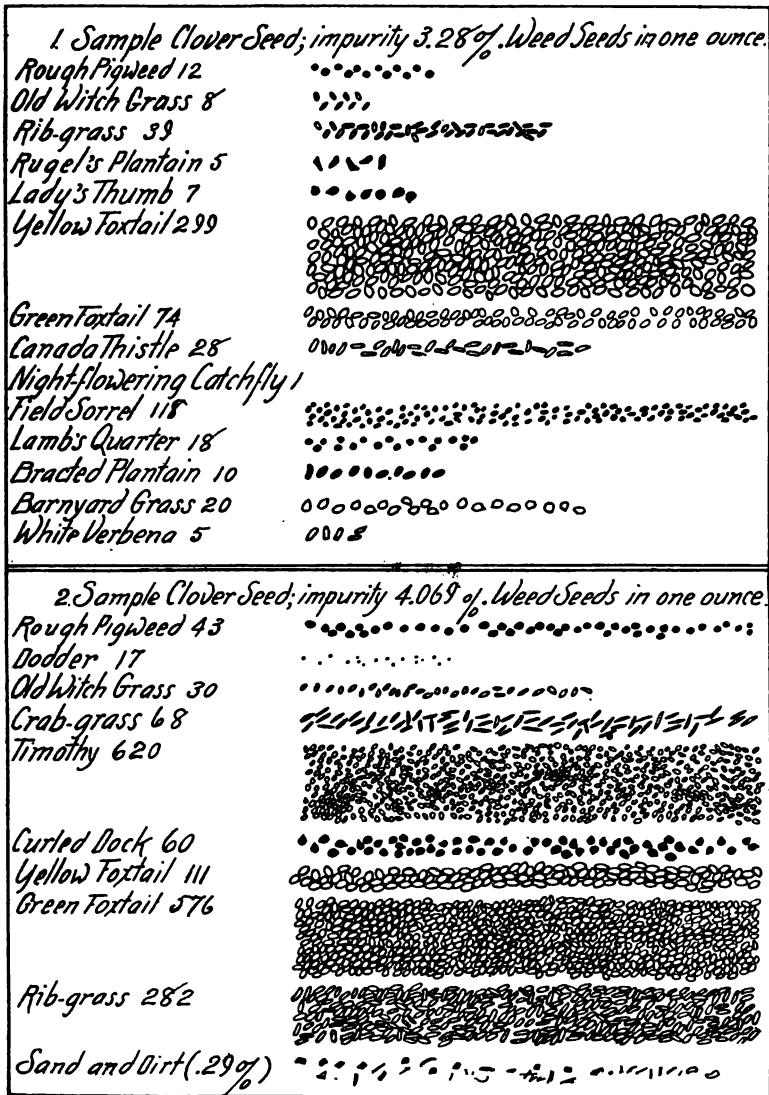 1. Sample Clover Seed; impurity 3.28%. Weed Seeds in one ounce.
Rough Pigweed 12
Old Witch Grass 8
Rib-grass 39
Rugel's Plantain 5
Lady's Thumb 7
Yellow Foxtail 299
Green Foxtail 74
Canada Thistle 28
Night-flowering Catchfly 1
Field Sorrel 118
Lamb's Quarter 18
Bracted Plantain 10
Barnyard Grass 20
White Verbena 5
2. Sample Clover Seed; impurity 4.069%. Weed Seeds in one ounce.
Rough Pigweed 43
Dodder 17
Old Witch Grass 30
Crab-grass 68
Timothy 620
Curled Dock 60
Yellow Foxtail 111
Green Foxtail 576
Rib-grass 282
Sand and Dirt (.29%)